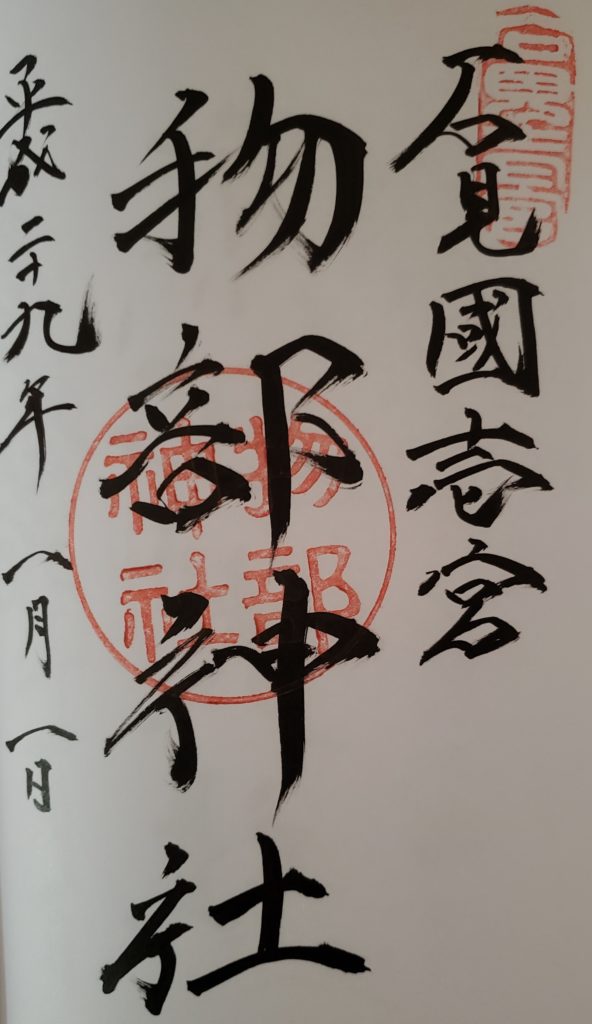 石見國壱宮
物部神社
物部
神社
平成二十九年 八月八日